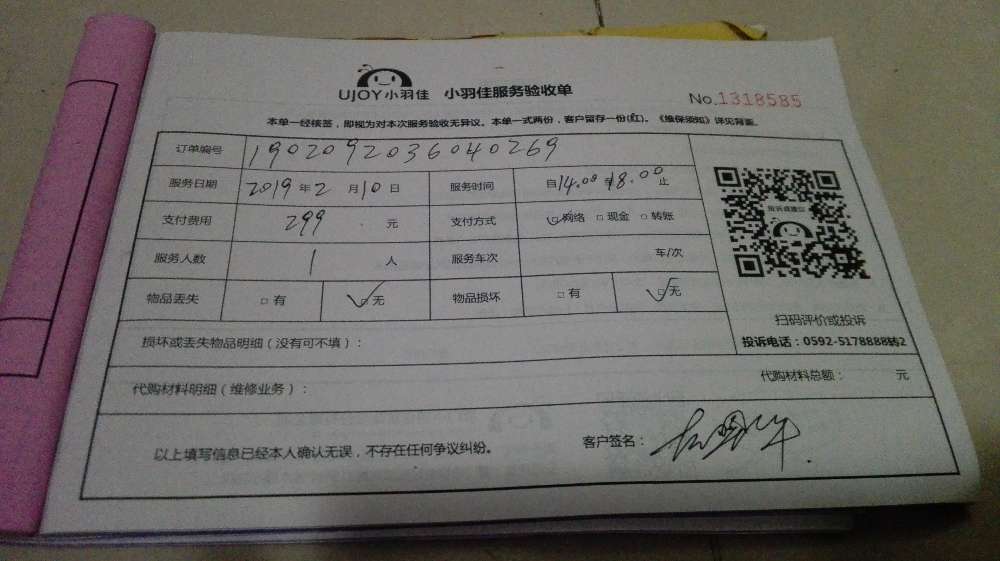 UJOY小羽佳 小羽佳服务验收单 No.1318585
本单一经核签，即视为对本次服务验收无异议。本单一式两份，客户留存一份(红)。《维保须知》详见背面。
订单编号 1902092036040269
服务日期 2019年2月10日 服务时间 自14.00至18.00止
支付费用 299 元 支付方式 ☑网络 □现金 □转账
服务人数 1 人 服务车次 车/次
物品丢失 □有 ☑无 物品损坏 □有 ☑无
投诉或建议
扫码评价或投诉
投诉电话：0592-5178888转2
损坏或丢失物品明细（没有可不填）：
代购材料明细（维修业务）： 代购材料总额： 元
以上填写信息已经本人确认无误，不存在任何争议纠纷。 客户签名：